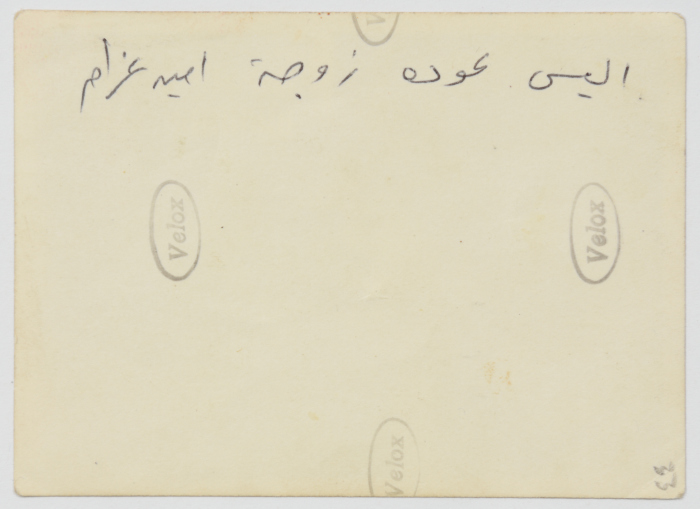 Velox
اليس عوده زوجة امين عزام
Velox
Velox
Velox